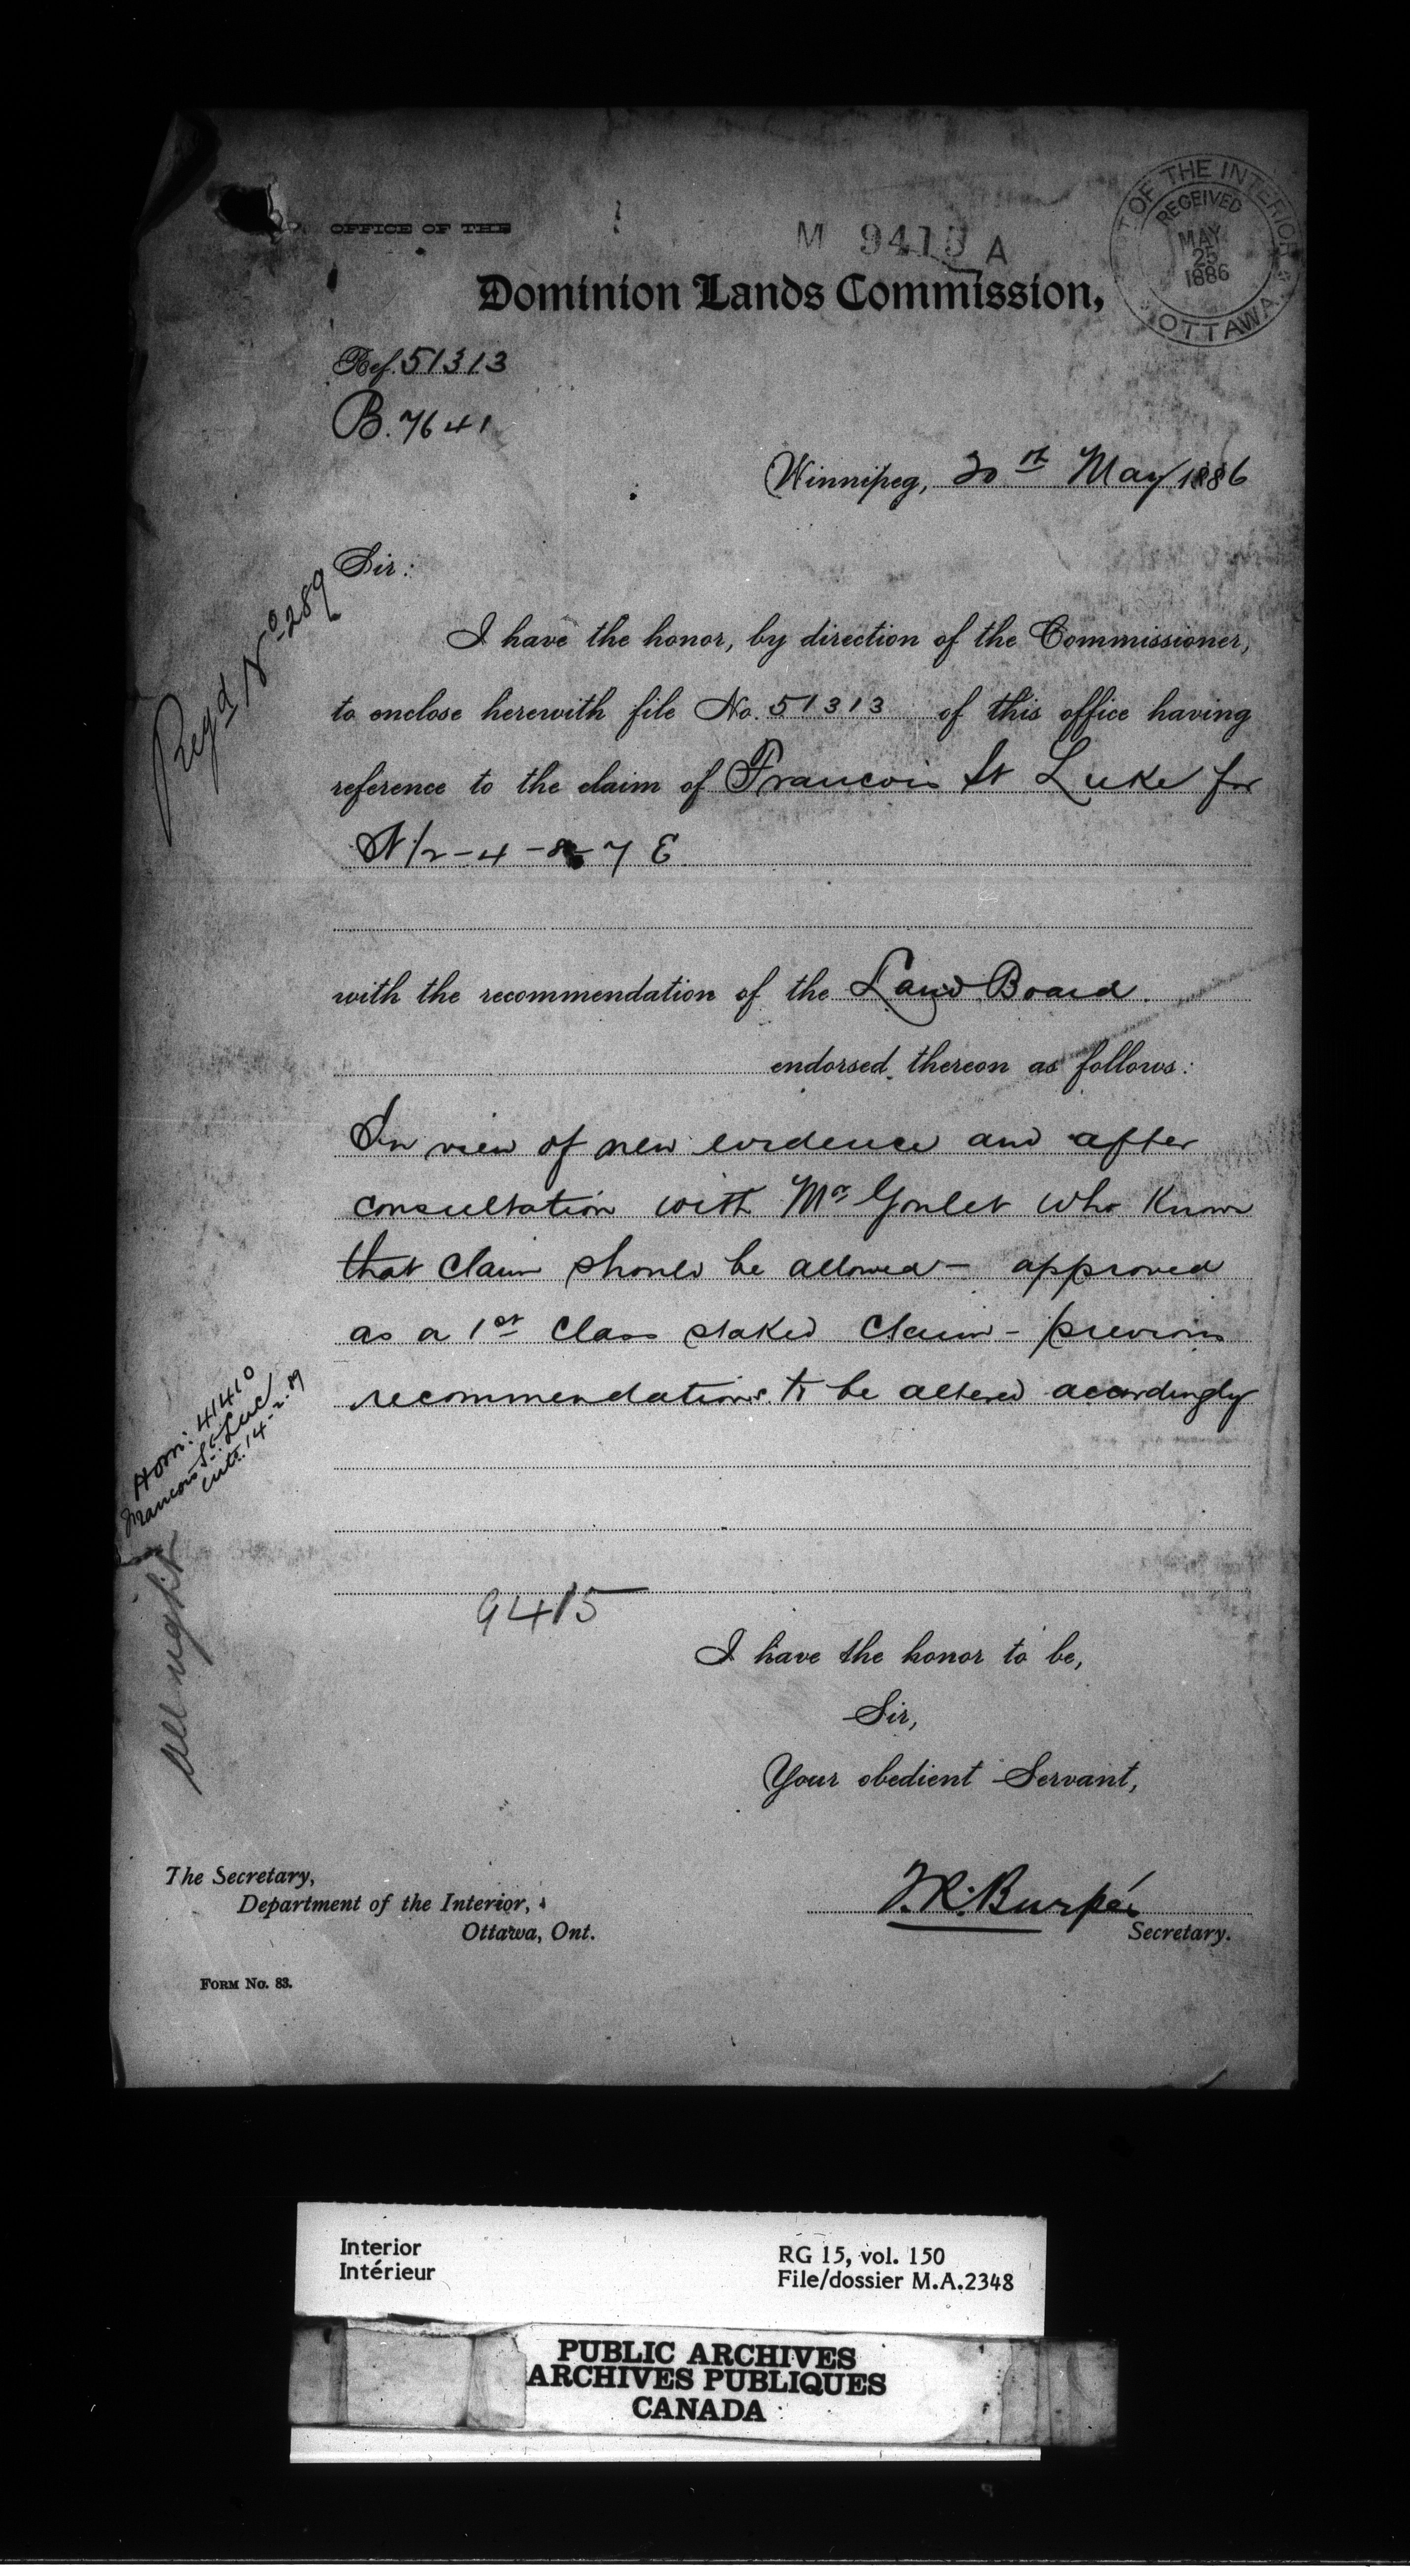 OFFICE OF THE
M 9415 A
T OF THE INTERIOR
RECEIVED
MAY
25
1886
OTTAWA
Dominion Lands Commission,
Ref. 51313
B. 7641
Winnipeg, 20th May 1886
Sir:
Regd No 289
I have the honor, by direction of the Commissioner,
to enclose herewith file No. 51313 of this office having
reference to the claim of Francois St Luke for
N 1/2 - 4 - 8 - 7 E
with the recommendation of the Land Board.
endorsed thereon as follows:
In view of new evidence and after
consultation with Mr Goulet who know
that claim should be allowed - approved
as a 1st Class staked Claim - previous
recommendations to be altered accordingly
Hom: 41410
Francois St. Luc
14-2-89
all right
9415
I have the honor to be,
Sir,
Your obedient Servant,
The Secretary,
Department of the Interior,
Ottawa, Ont.
Burpé
Secretary.
FORM No. 83.
Interior
Intérieur
RG 15, vol. 150
File/dossier M.A.2348
PUBLIC ARCHIVES
ARCHIVES PUBLIQUES
CANADA